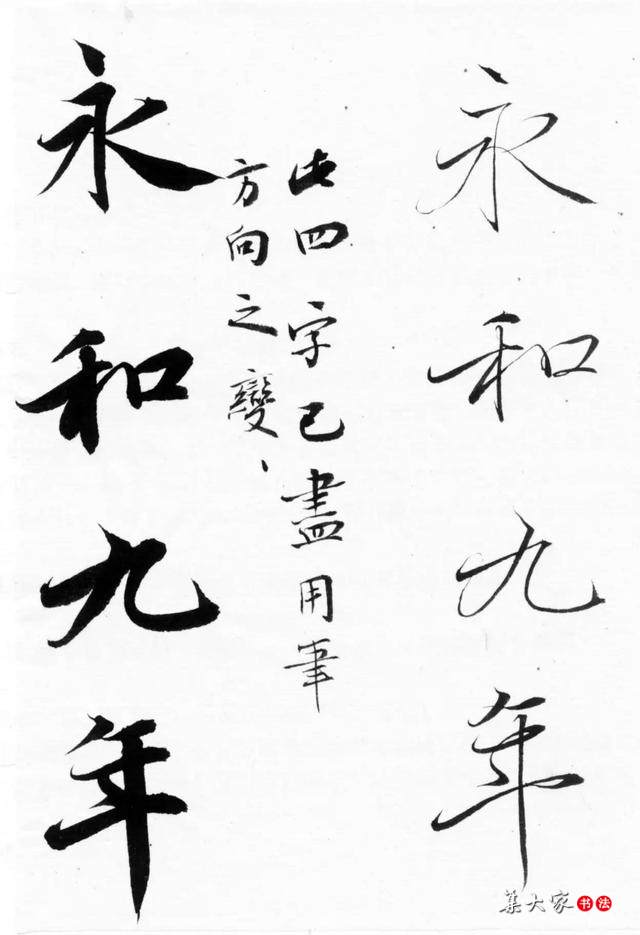 永和九年
此四字已盡用筆
方向之變、
永和九年
集大家书法